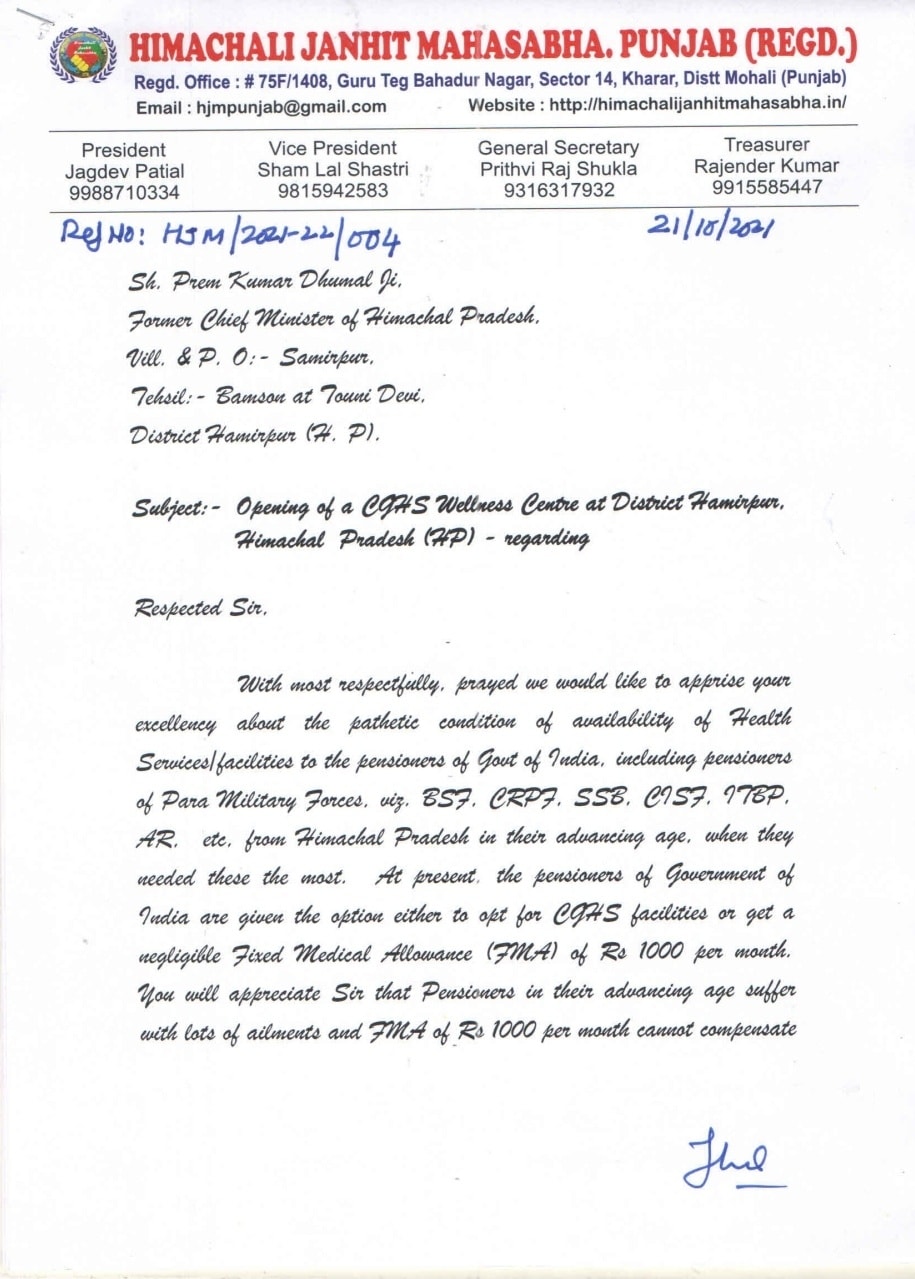 HIMACHALI JANHIT MAHASABHA. PUNJAB (REGD.)
Regd. Office : # 75F/1408, Guru Teg Bahadur Nagar, Sector 14, Kharar, Distt Mohali (Punjab)
Email : hjmpunjab@gmail.com Website : http://himachalijanhitmahasabha.in/
President Vice President General Secretary Treasurer
Jagdev Patial Sham Lal Shastri Prithvi Raj Shukla Rajender Kumar
9988710334 9815942583 9316317932 9915585447
Ref No: HJM/2021-22/004 21/10/2021
Sh. Prem Kumar Dhumal Ji,
Former Chief Minister of Himachal Pradesh,
Vill. & P. O:- Samirpur,
Tehsil:- Bamson at Touni Devi,
District Hamirpur (H. P).
Subject:- Opening of a CGHS Wellness Centre at District Hamirpur,
Himachal Pradesh (HP) - regarding
Respected Sir,
With most respectfully, prayed we would like to apprise your
excellency about the pathetic condition of availability of Health
Services/facilities to the pensioners of Govt of India, including pensioners
of Para Military Forces, viz. BSF, CRPF, SSB, CISF, ITBP,
AR, etc, from Himachal Pradesh in their advancing age, when they
needed these the most. At present, the pensioners of Government of
India are given the option either to opt for CGHS facilities or get a
negligible Fixed Medical Allowance (FMA) of Rs 1000 per month.
You will appreciate Sir that Pensioners in their advancing age suffer
with lots of ailments and FMA of Rs 1000 per month cannot compensate